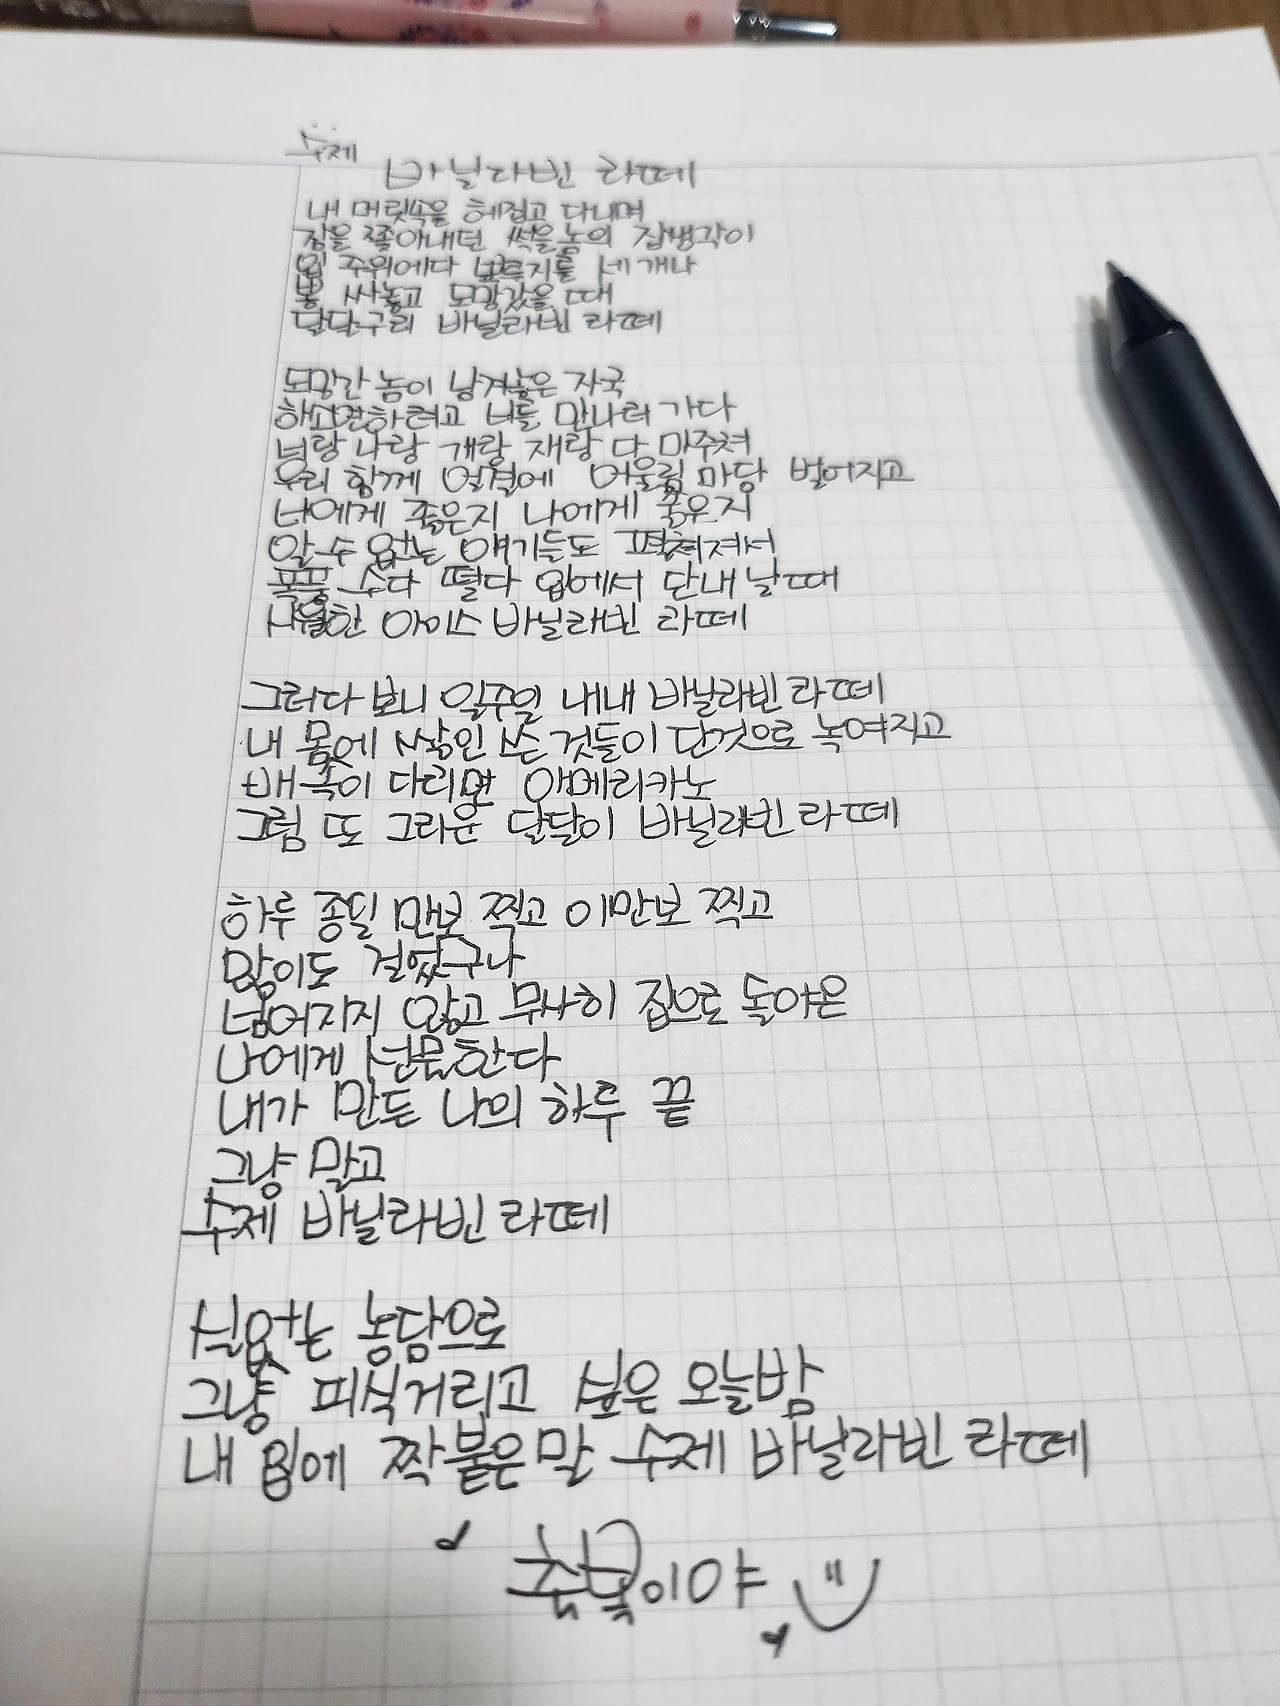 수제
바닐라빈 라떼
내 머릿속을 헤집고 다니며
잠을 쫓아내던 썩을놈의 잡생각이
입 주위에다 뾰루지를 세개나
뽕 싸놓고 도망갔을 때
달달구리 바닐라빈 라떼
도망간 놈이 남겨놓은 자국
하소연하려고 너를 만나러 가다
너랑 나랑 걔랑 쟤랑 다 마주쳐
우리 함께 얼결에 어울림 마당 벌어지고
너에게 좋은지 나에게 좋은지
알 수 없는 얘기들도 펼쳐져서
폭풍 수다 떨다 입에서 단내 날 때
시원한 아이스 바닐라빈 라떼
그러다 보니 일주일 내내 바닐라빈 라떼
내 몸에 쌓인 쓴 것들이 단것으로 녹여지고
뱃속이 다리면 아메리카노
그럼 또 그리운 달달이 바닐라빈 라떼
하루 종일 만보 찍고 이만보 찍고
많이도 걸었구나
넘어지지 않고 무사히 집으로 돌아온
나에게 선물한다
내가 만든 나의 하루 끝
그냥 말고
수제 바닐라빈 라떼
실없는 농담으로
그냥 피식거리고 싶은 오늘밤
내 입에 짝붙은말 수제 바닐라빈 라떼
이야